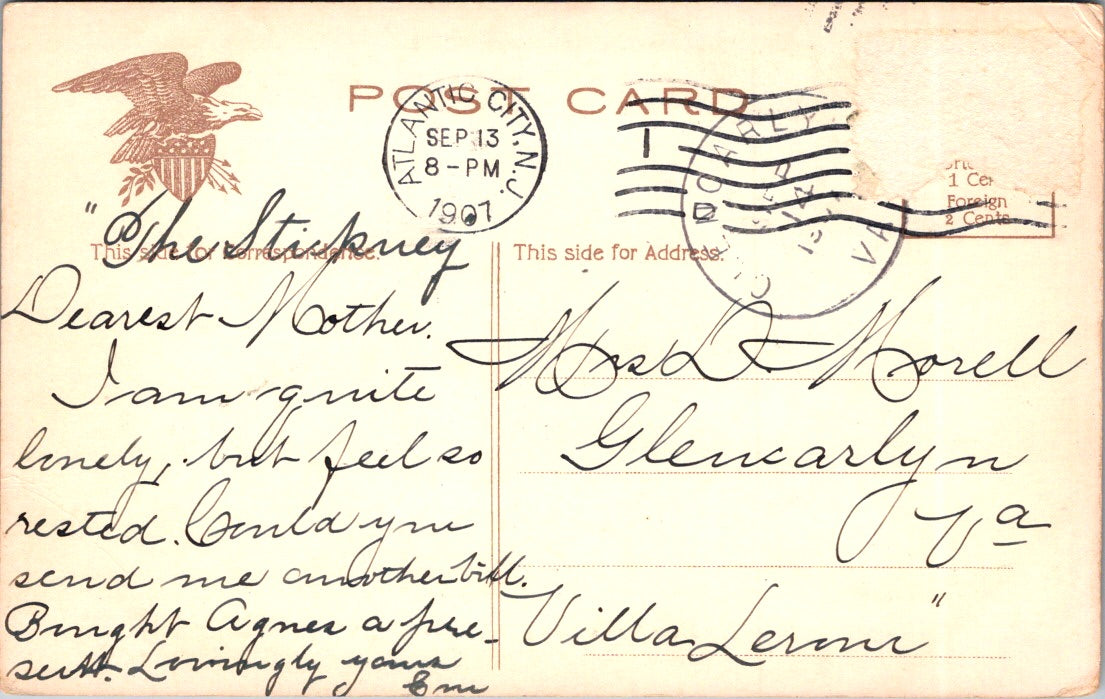 POST CARD
ATLANTIC CITY, N.J.
SEP 13
8-PM
1907
GLENCARLYN
SEP
14
VA
1 Ce
Foreign
2 Cents
"The Stickney
This side for Correspondence.
This side for Address.
Dearest Mother.
I am quite
lonely, but feel so
rested. Could you
send me another bill.
Bought Agnes a pre-
sent. Lovingly yours
Em
Mrs L Morell
Glencarlyn
Va
"Villa